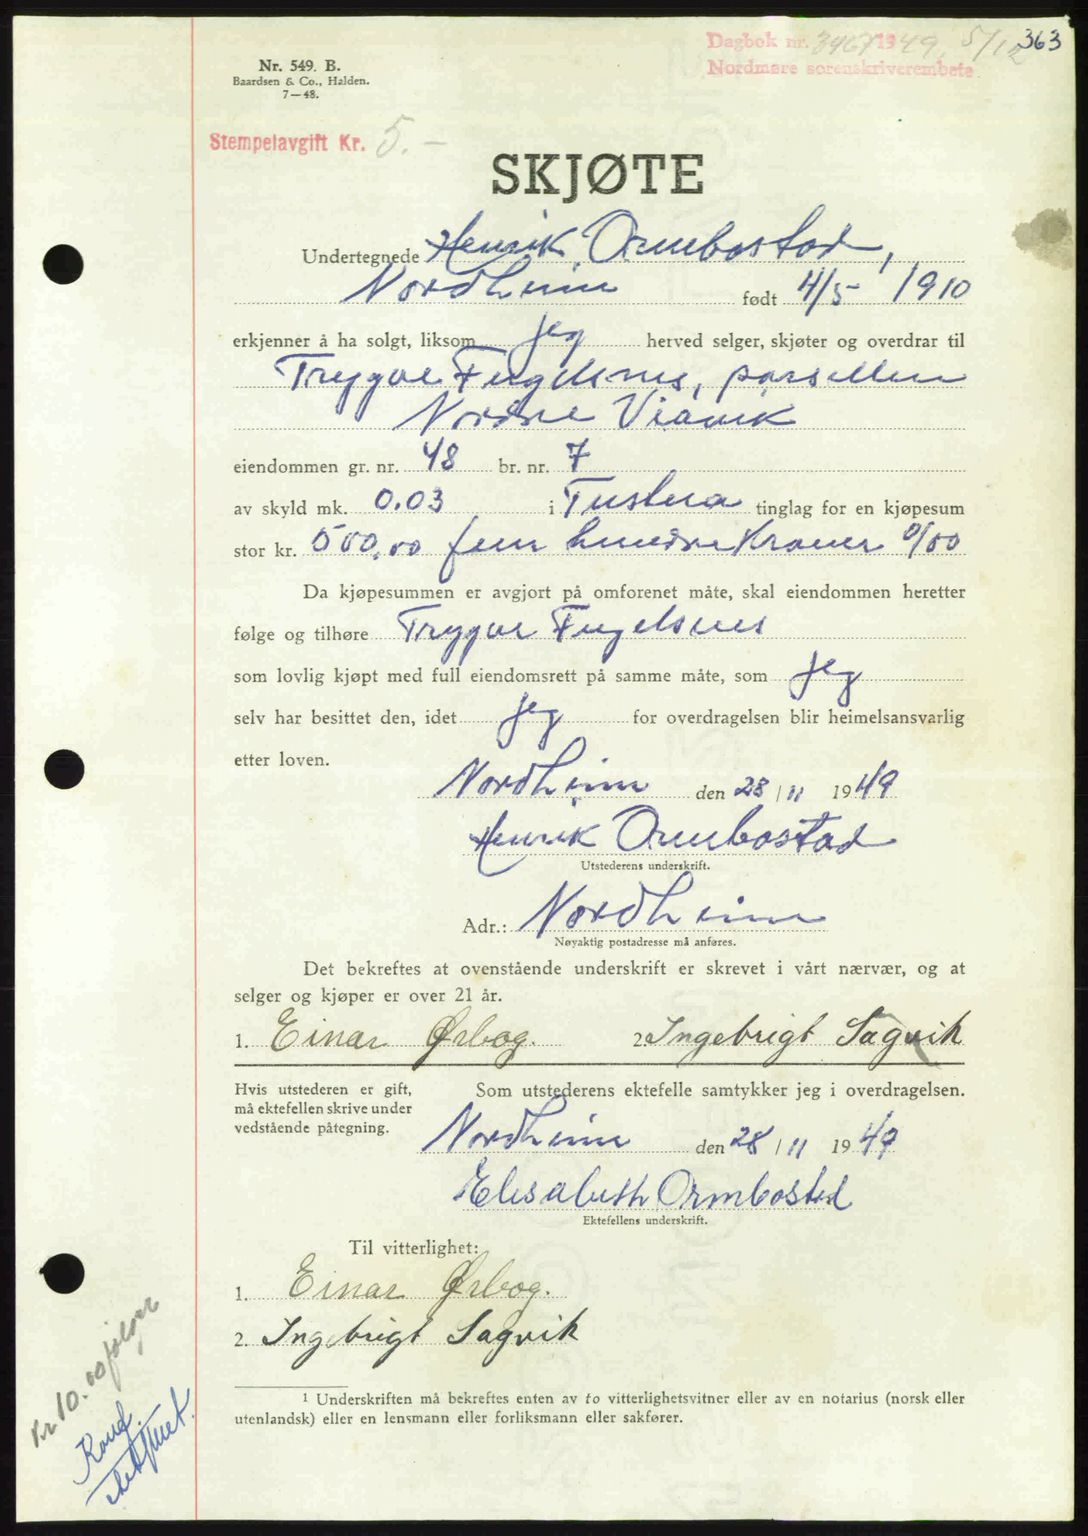 Dagbok nr. 3967 1949, 5/12 363
Nordmøre sorenskriverembete
Nr. 549. B.
Baardsen & Co., Halden.
7—48.
Stempelavgift Kr. 5.-
SKJØTE
Undertegnede Henrik Ormbostad,
Nordheim født 4/5- 1910
erkjenner å ha solgt, liksom jeg herved selger, skjøter og overdrar til
Trygve Fugelsnes, parsellen
Nordre Viavik
eiendommen gr. nr. 48 br. nr. 7
av skyld mk. 0.03 i Tustna tinglag for en kjøpesum
stor kr. 500,00 fem hundre Kroner 0/00
Da kjøpesummen er avgjort på omforenet måte, skal eiendommen heretter
følge og tilhøre Trygve Fugelsnes
som lovlig kjøpt med full eiendomsrett på samme måte, som jeg
selv har besittet den, idet jeg for overdragelsen blir heimelsansvarlig
etter loven.
Nordheim den 28/11 1949
Henrik Ormbostad
Utstederens underskrift.
Adr.: Nordheim
Nøyaktig postadresse må anføres.
Det bekreftes at ovenstående underskrift er skrevet i vårt nærvær, og at
selger og kjøper er over 21 år.
1. Einar Ørbog. 2. Ingebrigt Sagvik
Hvis utstederen er gift,
må ektefellen skrive under
vedstående påtegning.
Som utstederens ektefelle samtykker jeg i overdragelsen.
Nordheim den 28/11 1949
Elisabeth Ormbostad
Ektefellens underskrift.
Til vitterlighet:
1. Einar Ørbog.
2. Ingebrigt Sagvik
1 Underskriften må bekreftes enten av to vitterlighetsvitner eller av en notarius (norsk eller
utenlandsk) eller en lensmann eller forliksmann eller sakfører.
Kr 10.00 følger